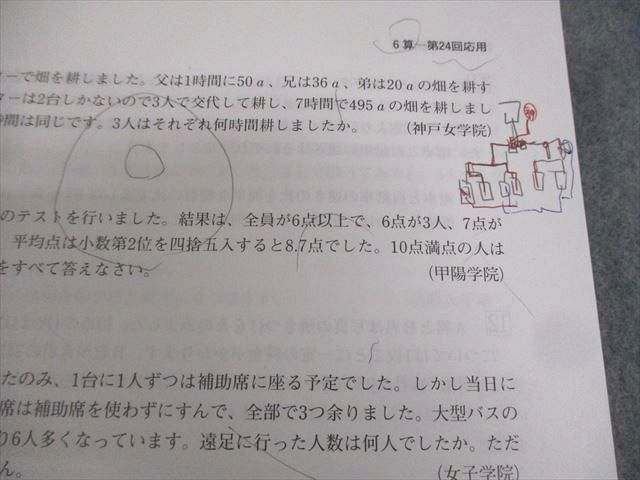 6算―第24回応用
ーで畑を耕しました。父は1時間に50a、兄は36a、弟は20aの畑を耕す
ーは2台しかないので3人で交代して耕し、7時間で495aの畑を耕しまし
間は同じです。3人はそれぞれ何時間耕しましたか。 (神戸女学院)
のテストを行いました。結果は、全員が6点以上で、6点が3人、7点が
平均点は小数第2位を四捨五入すると8.7点でした。10点満点の人は
をすべて答えなさい。 (甲陽学院)
たのみ、1台に1人ずつは補助席に座る予定でした。しかし当日に
席は補助席を使わずにすんで、全部で3つ余りました。大型バスの
り6人多くなっています。遠足に行った人数は何人でしたか。ただ
ん。 (女子学院)